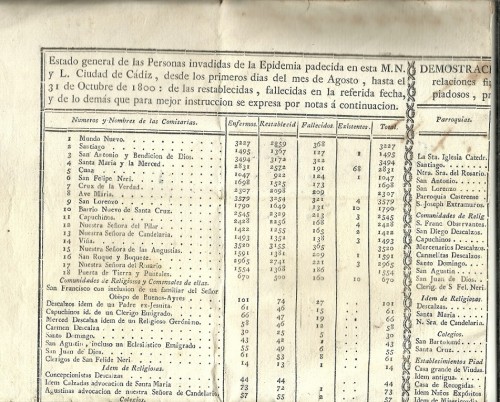 Estado general de las Personas invadidas de la Epidemia padecida en esta M. N.
y L. Ciudad de Cádiz, desde los primeros dias del mes de Agosto, hasta el
31 de Octubre de 1800: de las restablecidas, fallecidas en la referida fecha,
y de lo demas que para mejor instruccion se expresa por notas á continuacion.
Numeros y Nombres de las Comisarias. Enfermos. Restablecid. Fallecidos. Existentes. Total.
1 Mundo Nuevo. 3227 2859 368 3227
2 Santiago 1495 1367 127 1 1495
3 San Antonio y Bendicion de Dios. 3494 3172 322 3494
4 Santa María y la Merced. 2831 2572 191 68 2831
5 Cuna 1047 922 124 1 1047
6 San Felipe Neri. 1698 1525 173 1698
7 Cruz de la Verdad. 2307 2098 209 2307
8 Ave María. 3579 3254 321 4 3579
9 San Lorenzo 1790 1649 131 10 1790
10 Barrio Nuevo de Santa Cruz. 2545 2329 213 3 2545
11 Capuchinos. 2428 2256 168 4 2428
12 Nuestra Señora del Pilar 1422 1255 165 2 1422
13 Nuestra Señora de Candelaria. 1493 1352 138 3 1493
14 Viña. 3520 3155 365 3520
15 Nuestra Señora de las Angustias. 1591 1381 209 1 1591
16 San Roque y Boquete. 2965 2741 221 3 2965
17 Nuestra Señora del Rosario 1554 1368 186 1554
18 Puerta de Tierra y Puntales. 670 500 160 10 670
Comunidades de Religiosos y Comensales de ellas.
San Francisco con inclusion de un familiar del Señor
Obispo de Buenos-Ayres 101 74 27 101
Descalzos idem de un Padre ex-Jesuita. 61 46 15 61
Capuchinos id. de un Clerigo Emigrado. 66 47 19 66
Merced Descalza idem de un Religioso Gerónimo. 58 46 12 58
Carmen Descalzo 30 25 5 30
Santo Domingo. 43 42 43
San Agustin, incluso un Eclesiástico Emigrado 55 49 6 55
San Juan de Dios. 61 53 8 61
Clerigos de San Felide Neri 14 13 1 14
Idem de Religiosas.
Concepcionistas Descalzas. 44 44
Idem Calzadas advocacion de Santa Maria 73 72 1
Agustinas advocacion de nuestra Señora de Candelaria. 57 55 2
Colegios.
DEMOSTRACI
relaciones
piadosos,
Parroquias.
La Sta. Iglesia Catedr.
Santiago.
Ntra. Sra. del Rosario.
San Antonio.
San Lorenzo
Parroquia Castrense
S. Joseph Extramuros.
Comunidades de Relig
S. Franc. Observantes
San Diego Descalzos.
Capuchinos
Mercenarios Descalzos.
Carmelitas Descalzos
Santo Domingo.
San Agustin
San Juan de Dios.
Clerig. de S. Fel. Neri.
Idem de Religiosas.
Descalzas.
Santa María
N. Sra. de Candelaria.
Colegios.
San Bartolomé
Santa Cruz.
Establecimientos Piad
Casa grande de Viudas.
Idem antigua.
Casa de Recogidas
Idem de Niños Expósitos